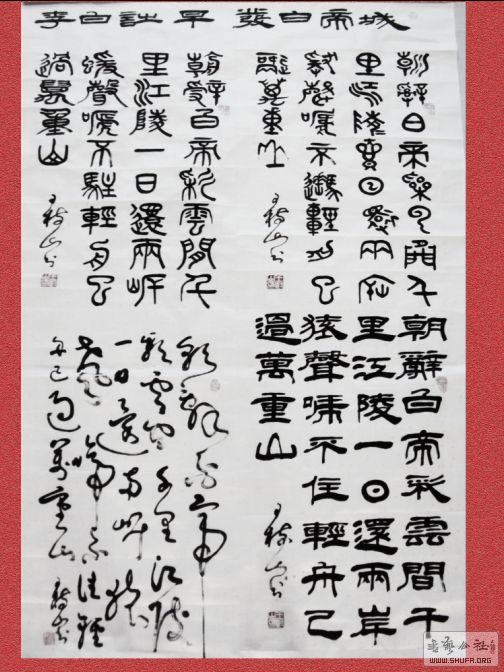 李白詩早發白帝城
朝辭白帝彩雲間千
里江陵壹日還兩岸
猿聲啼不住輕舟已
過萬重山
朝辭白帝彩雲間千
里江陵一日還兩岸
猨聲嗁不駐輕舟已
過萬重山
朝辭白帝彩雲間千
里江陵一日還兩岸
猿聲啼不住輕舟已
過萬重山
朝辭白帝
彩雲間千里江陵
一日還兩岸猿
聲啼不住輕
舟已過萬重山
书法公社
WWW.SHUFA.ORG